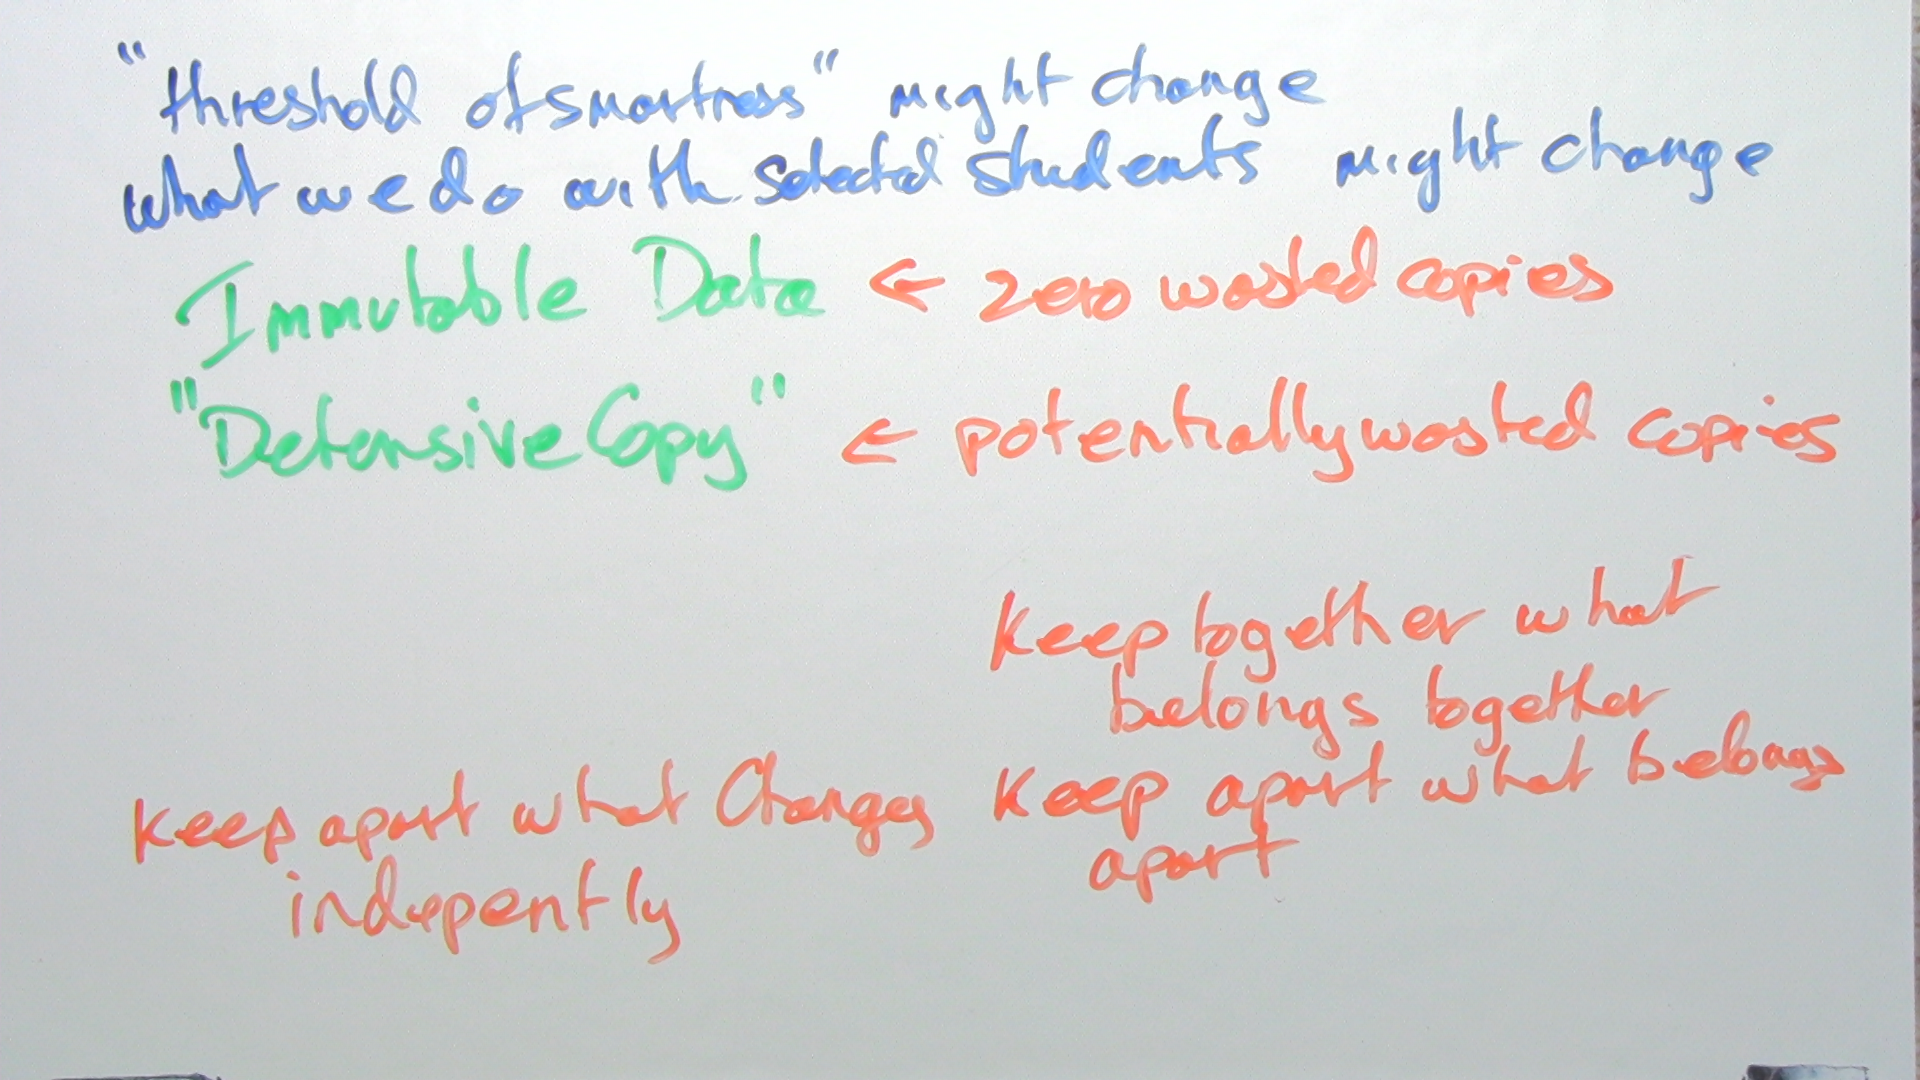 "threshold of smartness" might change
what we do with selected students might change
Immutable Data ← zero wasted copies
"Defensive Copy" ← potentially wasted copies
Keep together what
belongs together
Keep apart what belongs
apart
Keep apart what Changes
indepently